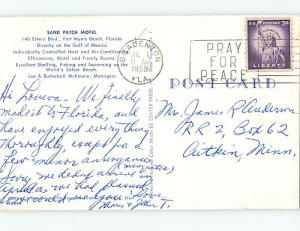 SAND PATCH MOTEL
140 Estero Blvd., Fort Myers Beach, Florida
Directly on the Gulf of Mexico
Individually Controlled Heat and Air-Conditioned
Efficiencies, Motel and Family Rooms
Excellent Shelling, Fishing and Swimming on the
World's Safest Beach.
Lee & Butterball McKenna, Managers
BRADENTON
FLA.
PRAY
FOR
PEACE
3¢
LIBERTY
POST CARD
Hi Louova - We finally
made it to Florida, and
have enjoyed every thing
thoroughly, except for a
few minor annoyances
(mosquitoes)
Sorry we didn't arrive in
April as we had planned
love
Mr. James R Anderson
RR 2, Box 62
Aitkin, Minn.